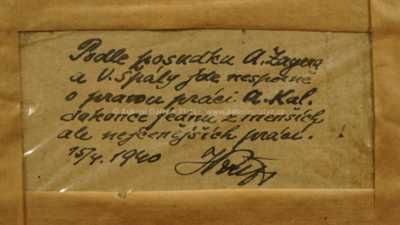 Podle posudku A. Zayera
a V. Špály jde nesporně
o pravou práci A. Kal.
dokonce jednu z menších
ale nejcenějších prácí.
15/4. 1940